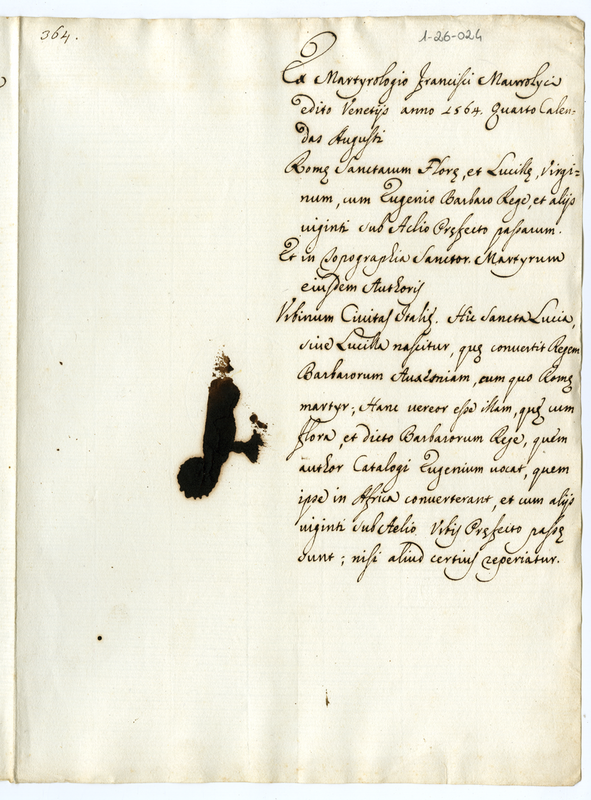 364.
1-26-024
Ex Martyrologio Francisci Maurolyci
edito Venetijs anno 1564. Quarto Calen=
das Augusti
Romę Sanctarum Florę, et Lucillę, Virgi=
num, cum Eugenio Barbaro Rege, et alijs
uiginti sub Aelio Pręfecto passarum.
Et in Topographia Sanctor. Martyrum
eiusdem Authoris
Vrbinum Ciuitas Italię. Hic Sancta Lucia,
siue Lucilla nascitur, quę conuertit Regem
Barbarorum Auxesniam, cum quo Romę
martyr; Hanc uereor esse illam, quę cum
Flora, et dicto Barbarorum Rege, quem
author Catalogi Eugenium uocat, quem
ipse in Africa conuerterant, et cum alijs
uiginti sub Aelio Vrbis Pręfecto passę
sunt; nisi aliud certius reperiatur.